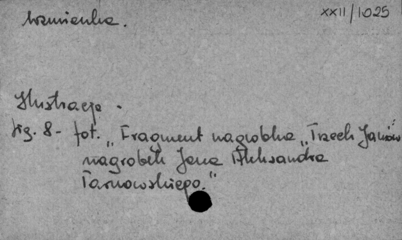 wzmianka.
XXII/1025
Ilustracje.
fig. 8 - fot. „Fragment nagrobka „Trzech Janów"
nagrobek Jana Aleksandra
Tarnowskiego."